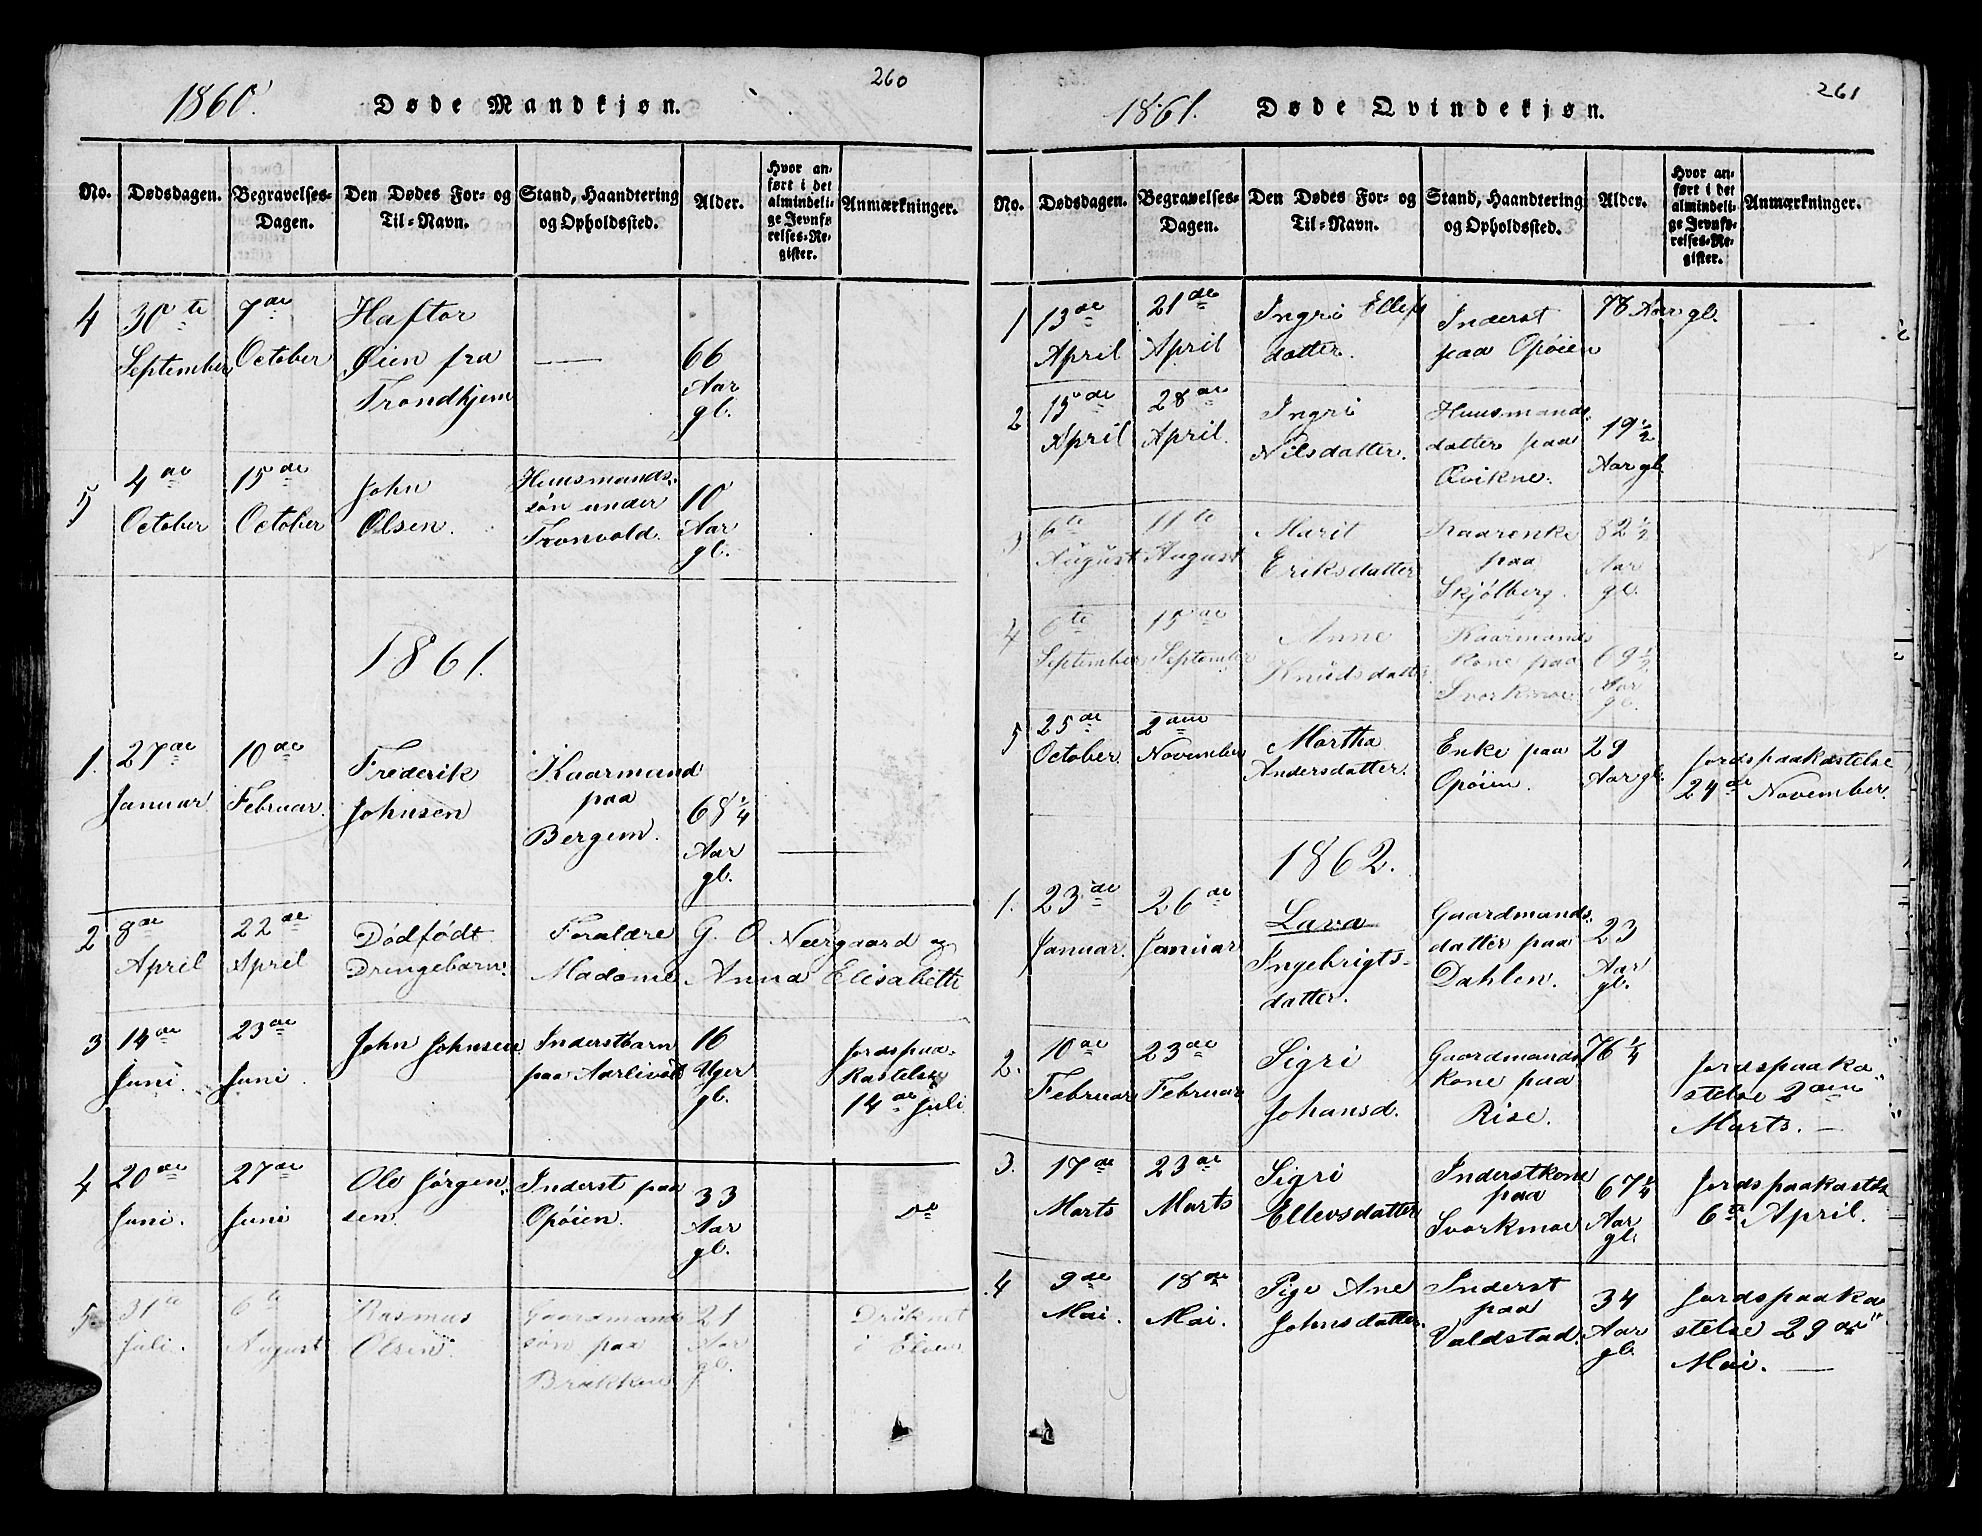 260
1860. Døde Mandkjøn.
No. Dødsdagen. Begravelses-Dagen. Den Dødes For- og Til-Navn. Stand, Haandtering og Opholdssted. Alder. Hvor anført i det almindelige Jevnførelses-Register. Anmærkninger.
4 30te 7de Haftor
September October Øien fra — 66
Trondhjem Aar
gl.
5 4de 15de John Huusmands-
October October Olsen. søn under 10
Tronvold. Aar
gl.
1861.
1. 27de 10de Frederik Kaarmand
Januar Februar. Johnsen paa 68 1/4
Bergem. Aar
gl.
2 8de 22de Dødfødt Forældre G. O. Neergaard og
April April Drengebarn. Madame Anna Elisabeth
3 14de 23de John Johnsen Inderstbarn 16 Jordspaa-
Juni. Juni. paa Aarlivold Uger kastelse
gl. 14de Juli
4 20de 27de Ole Jørgen- Inderst paa 33 do
Juni. Juni sen. Opøien. Aar
gl.
5. 31te 6te Rasmus Gaardmands 21 Druknet
Juli. August Olsen søn paa Aar i Elven
gl.
261
1861. Døde Qvindekjøn.
No. Dødsdagen. Begravelses-Dagen. Den Dødes For- og Til-Navn. Stand, Haandtering og Opholdssted. Alder. Hvor anført i det almindelige Jevnførelses-Register. Anmærkninger.
1 13de 21de Ingri Ellefs Inderst 78 Aar gl. —
April April datter. paa Opøien
2 15de 28de Ingri Huusmands- 19 1/2
April April. Nilsdatter. datter paa Aar gl.
Qvikne.
3 6te 11te Marit Kaarenke 82 1/2
August August Eriksdatter paa Aar
Skjølberg. gl.
4 6te 15de Anne Kaarmands
September September Knudsdatter kone paa 69 1/2
Svorkmoe Aar
gl.
5 25de 2den Martha Enke paa 29 Jordspaakastelse
October. November Andersdatter. Opøien. Aar gl. 24de November.
1862.
1. 23de 26de Lava Gaardmands- 23
Januar. Januar Ingebrigts- datter paa Aar
datter. Dahlen. gl.
2. 10de 23de Sigri Gaardmands 76 1/4 Jordspaaka-
Februar Februar Johansd. kone paa stelse 2den
Rise. Marts. —
3. 17de 23de Sigri Inderstkone 67 1/4 Jordspaakastelse
Marts Marts Ellevsdatter paa Aar 6te April.
Svorkmoe gl.
4 9de 18de Pige Ane Inderst 34 Jordspaaka-
Mai. Mai. Johnsdatter. paa Aar stelse 29de
Valdstad. gl. Mai. —